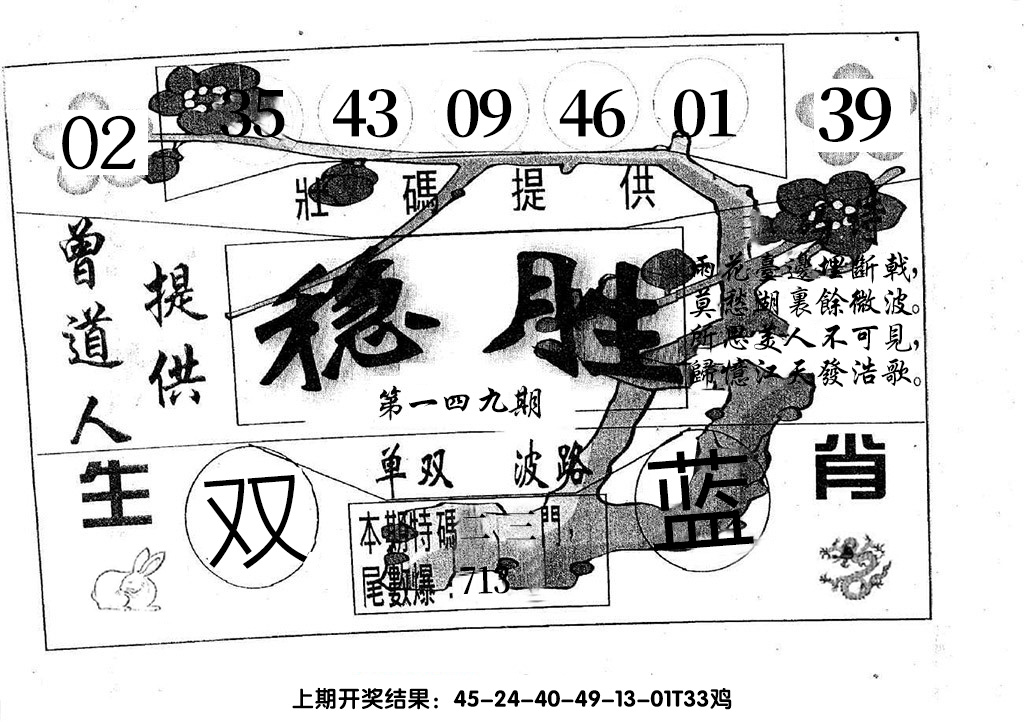 02 35 43 09 46 01 39
壯碼提供
特
曾道人
提供
稳胜
第一四九期
雨花臺邊埋斷戟，
莫愁湖裏餘微波。
所思美人不可見，
歸憶江天發浩歌。
单双 波路
生
双
蓝
肖
本期特碼二、三門，
尾數爆：713
上期开奖结果：45-24-40-49-13-01T33鸡